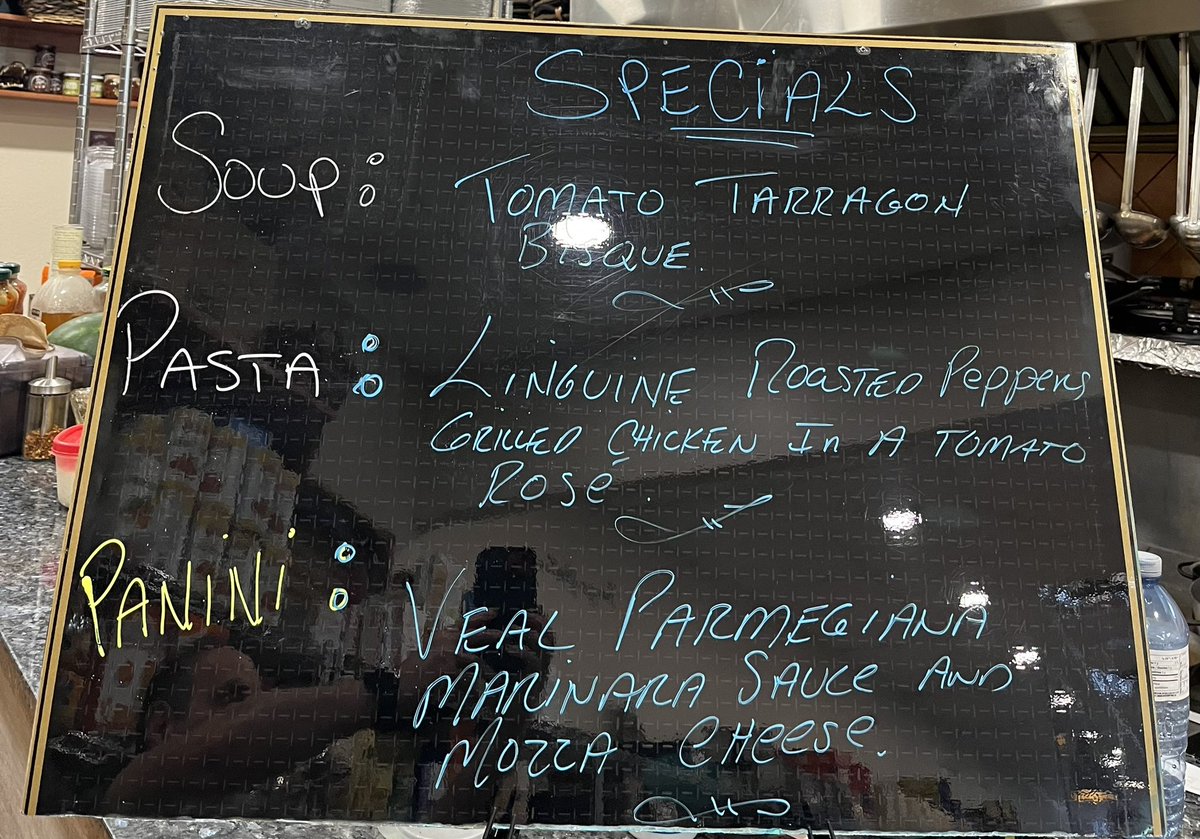 SPECiALS
SOUP: TOMATO TARRAGON
BISQUE.
PASTA: LINGUINE ROASTED PePPers
GRILLED CHICKEN In A TOMATO
Rosé.
PANiNi: VEAL PARMEGIANA
MARINARA SAUCe AND
MOZZA CHeese.